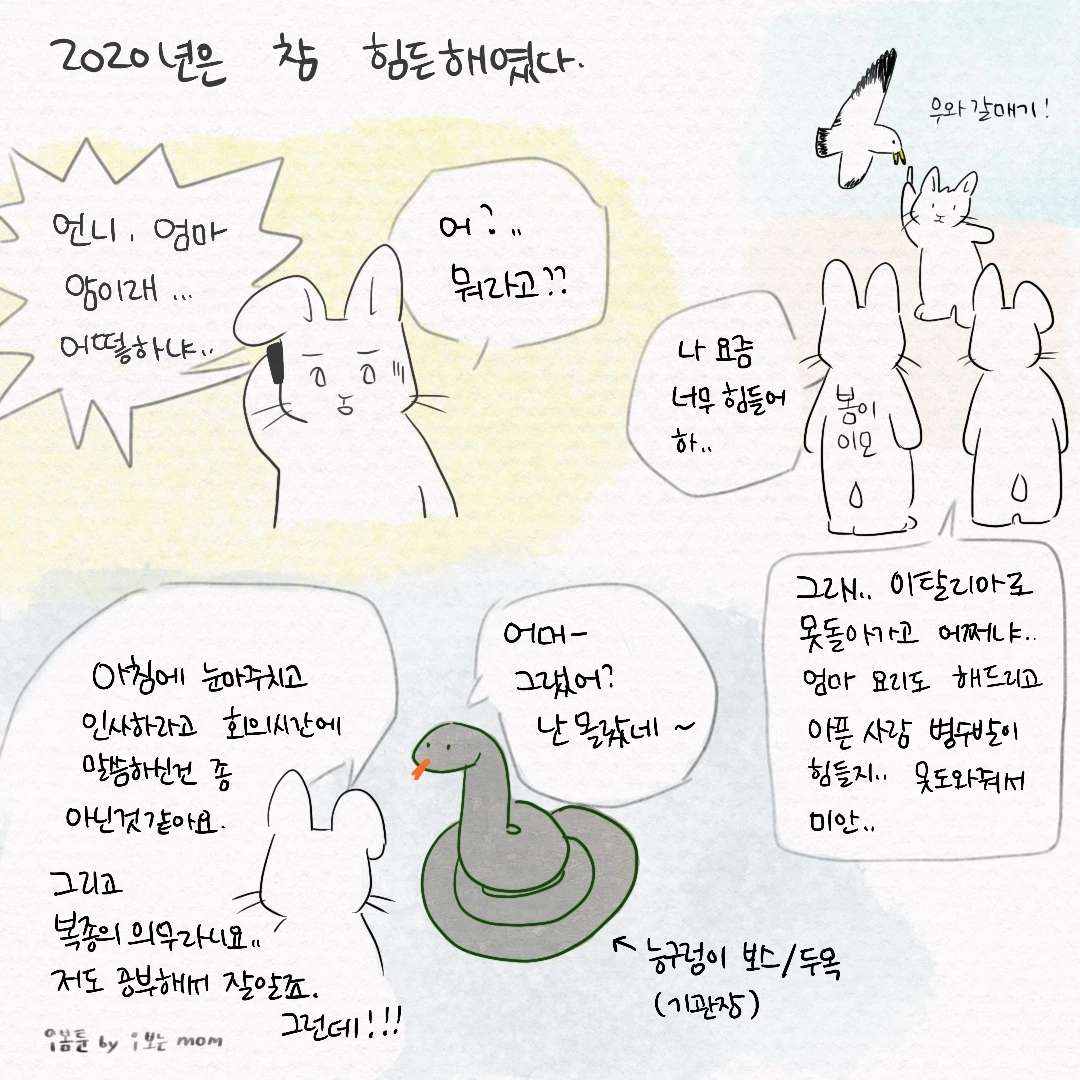 2020년은 참 힘든해였다.
언니, 엄마
암이래 ...
어떻하냐..
어?..
뭐라고??
우와 갈매기!
나 요즘
너무 힘들어
하..
봄이
이모
그래.. 이탈리아로
못돌아가고 어쩌냐..
엄마 요리도 해드리고
아픈 사람 병수발이
힘들지.. 못도와줘서
미안..
아침에 눈마주치고
인사하라고 회의시간에
말씀하신건 좀
아닌것같아요.
그리고
복종의 의무라니요..
저도 공부해서 잘알죠.
그런데!!!
어머-
그랬어?
난 몰랐네 ~
능구렁이 보스/두목
(기관장)
by
mom